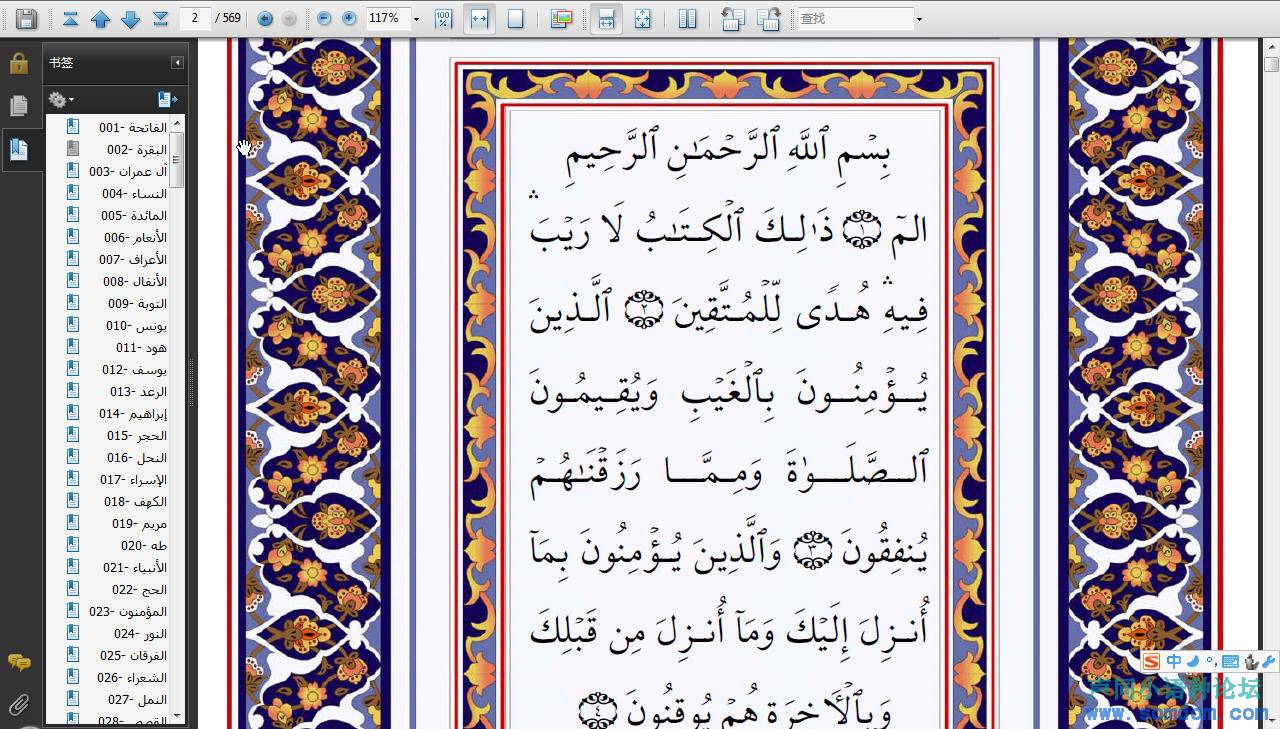 2 / 569
117%
查找
书签
الفاتحة -001
البقرة -002
آل عمران -003
النساء -004
المائدة -005
الأنعام -006
الأعراف -007
الأنفال -008
التوبة -009
يونس -010
هود -011
يوسف -012
الرعد -013
إبراهيم -014
الحجر -015
النحل -016
الإسراء -017
الكهف -018
مريم -019
طه -020
الأنبياء -021
الحج -022
المؤمنون -023
النور -024
الفرقان -025
الشعراء -026
النمل -027
القصص -028
بِسْمِ ٱللَّهِ ٱلرَّحْمَـٰنِ ٱلرَّحِيمِ
الٓمٓ ١ ذَٰلِكَ ٱلْكِتَـٰبُ لَا رَيْبَ ۛ
فِيهِ ۛ هُدًى لِّلْمُتَّقِينَ ٢ ٱلَّذِينَ
يُؤْمِنُونَ بِٱلْغَيْبِ وَيُقِيمُونَ
ٱلصَّلَوٰةَ وَمِمَّا رَزَقْنَـٰهُمْ
يُنفِقُونَ ٣ وَٱلَّذِينَ يُؤْمِنُونَ بِمَآ
أُنزِلَ إِلَيْكَ وَمَآ أُنزِلَ مِن قَبْلِكَ
وَبِٱلْأَخِرَةِ هُمْ يُوقِنُونَ ٤
中
声同小语种论坛
www.somdom.com